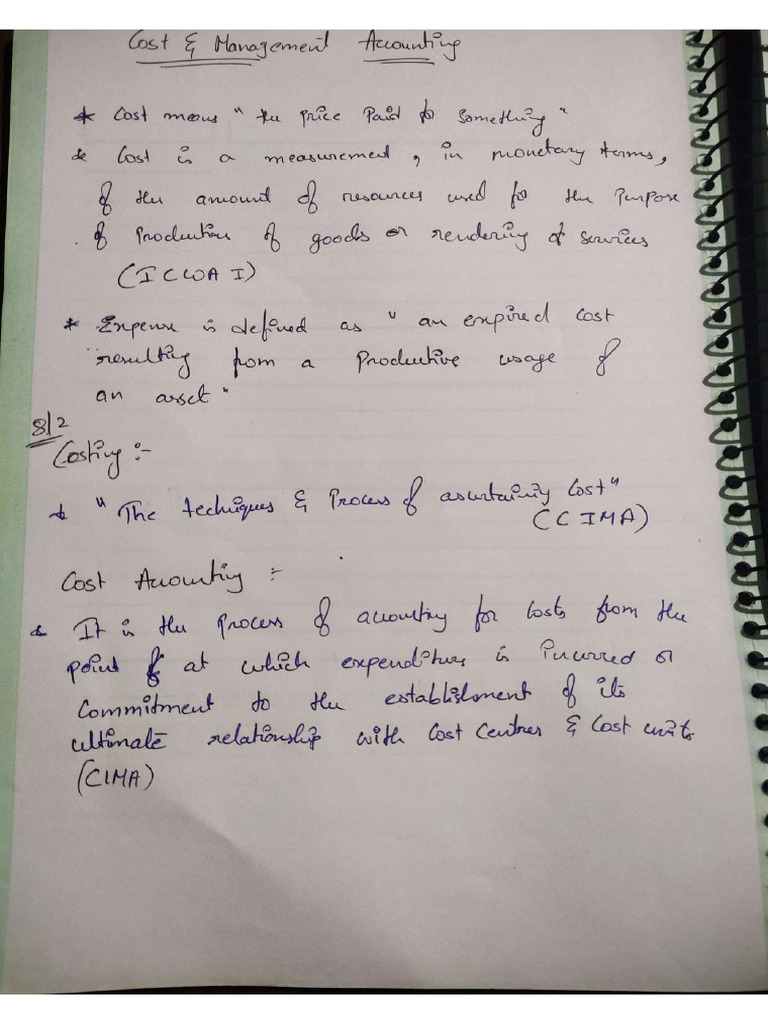 Cost & Management Accounting
* Cost means "the price Paid for Something"
* Cost is a measurement, in monetary terms,
of the amount of resources used for the Purpose
of Production of goods or rendering of services
(ICWAI)
* Expense is defined as "an expired cost
resulting from a Productive usage of
an asset"
8/2
Costing :-
* "The techniques & Process of ascertaining Cost"
(CIMA)
Cost Accounting :-
* It is the process of accounting for Costs from the
point at which expenditure is incurred or
Commitment to the establishment of its
ultimate relationship with Cost Centres & Cost units
(CIMA)